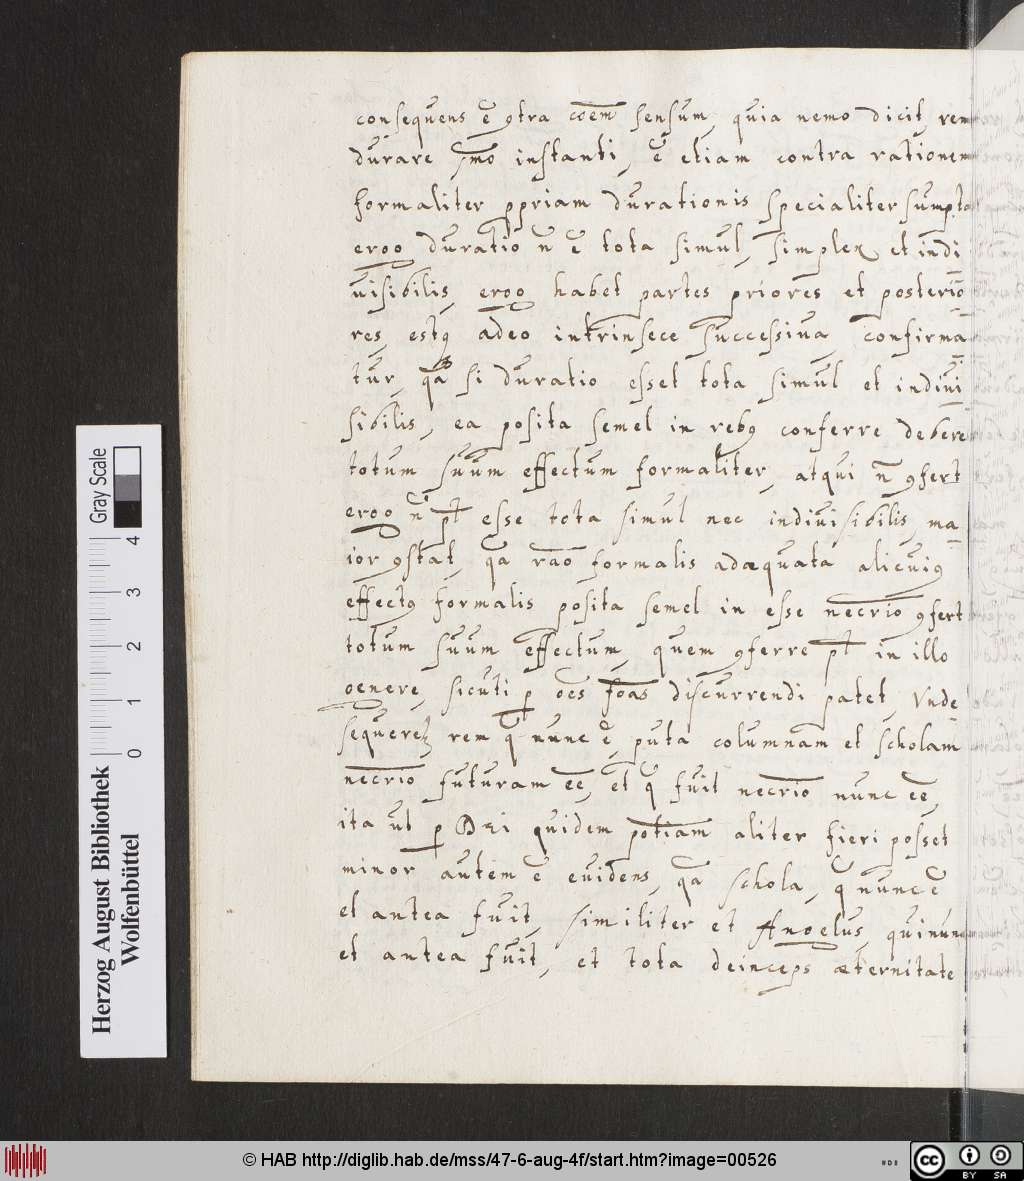 consequens ē ꝯtra cōem sensum, quia nemo dicit, rem
durare ꝯmo instanti, ē etiam contra rationem
formaliter ꝓpriam durationis specialiter sumpta
ergo duratio ñ ē tota simul, simplex et indi
uisibilis, ergo habet partes priores et posterio
res, estqꝫ adeo intrinsece successiua, confirma
tur, qã si duratio esset tota simul et indiui
sibilis, ea posita semel in rebꝰ conferre debere
totum suum effectum formaliter, atqui ñ ꝯfert
ergo ñ pt̄ esse tota simul nec indiuisibilis, ma
ior ꝯstat, qã rão formalis adæquata alicuiꝰ
effectꝰ formalis posita semel in esse necrio ꝯfert
totum suum effectum, quem ꝯferre pt̄ in illo
genere, sicuti ꝑ oēs formas discurrendi patet, Vnde
sequeretꝛ rem q̃ nunc ē, puta columnam et scholam
necrio futuram eē, et q̃ fuit necrio nunc eē,
ita ut ꝑ Dei quidem potiam aliter fieri posset
minor autem ē euidens, qã schola, q̃ nunc ē
et antea fuit, similiter et Angelus, qui nunc
et antea fuit, et tota deinceps æternitate
Gray Scale
0 1 2 3 4
Herzog August Bibliothek
Wolfenbüttel
© HAB http://diglib.hab.de/mss/47-6-aug-4f/start.htm?image=00526
cc BY SA